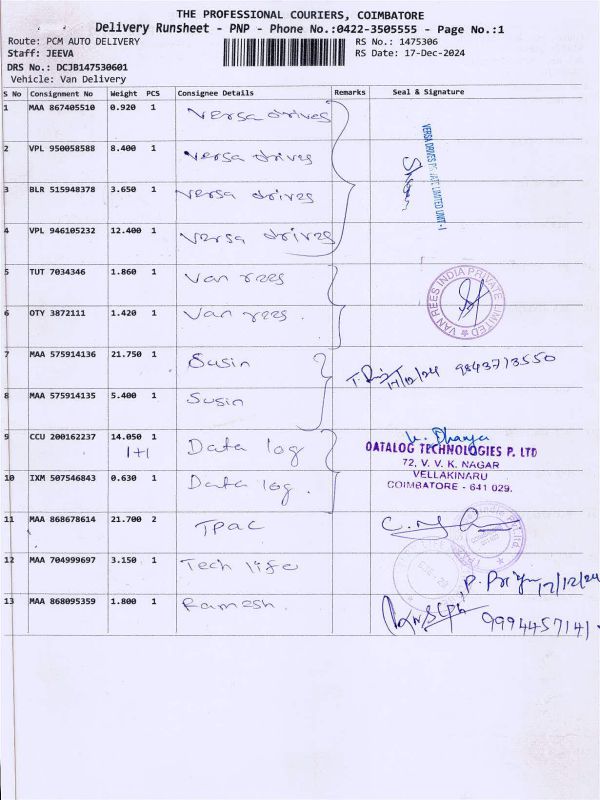 THE PROFESSIONAL COURIERS, COIMBATORE
Delivery Runsheet - PNP - Phone No.:0422-3505555 - Page No.:1
Route: PCM AUTO DELIVERY RS No.: 1475306
Staff: JEEVA RS Date: 17-Dec-2024
DRS No.: DCJB147530601
Vehicle: Van Delivery
S No Consignment No Weight PCS Consignee Details Remarks Seal & Signature
1 MAA 867405510 0.920 1 Versa drives
2 VPL 950058588 8.400 1 Versa drives
3 BLR 515948378 3.650 1 Versa drives
4 VPL 946105232 12.400 1 Versa drives
VERSA DRIVES PRIVATE LIMITED UNIT-I
5 TUT 7034346 1.860 1 Van rees
6 OTY 3872111 1.420 1 Van rees.
VAN REES INDIA PRIVATE LIMITED
7 MAA 575914136 21.750 1 Susin
17/12/24 9843713550
8 MAA 575914135 5.400 1 Susin
9 CCU 200162237 14.050 1 Data log
1+1
10 IXM 507546843 0.630 1 Data log.
DATALOG TECHNOLOGIES P. LTD
72, V. V. K. NAGAR
VELLAKINARU
COIMBATORE - 641 029.
11 MAA 868678614 21.700 2 TPAC
12 MAA 704999697 3.150 1 Tech life
P. Priya 17/12/24
13 MAA 868095359 1.800 1 Ramesh
9994457141